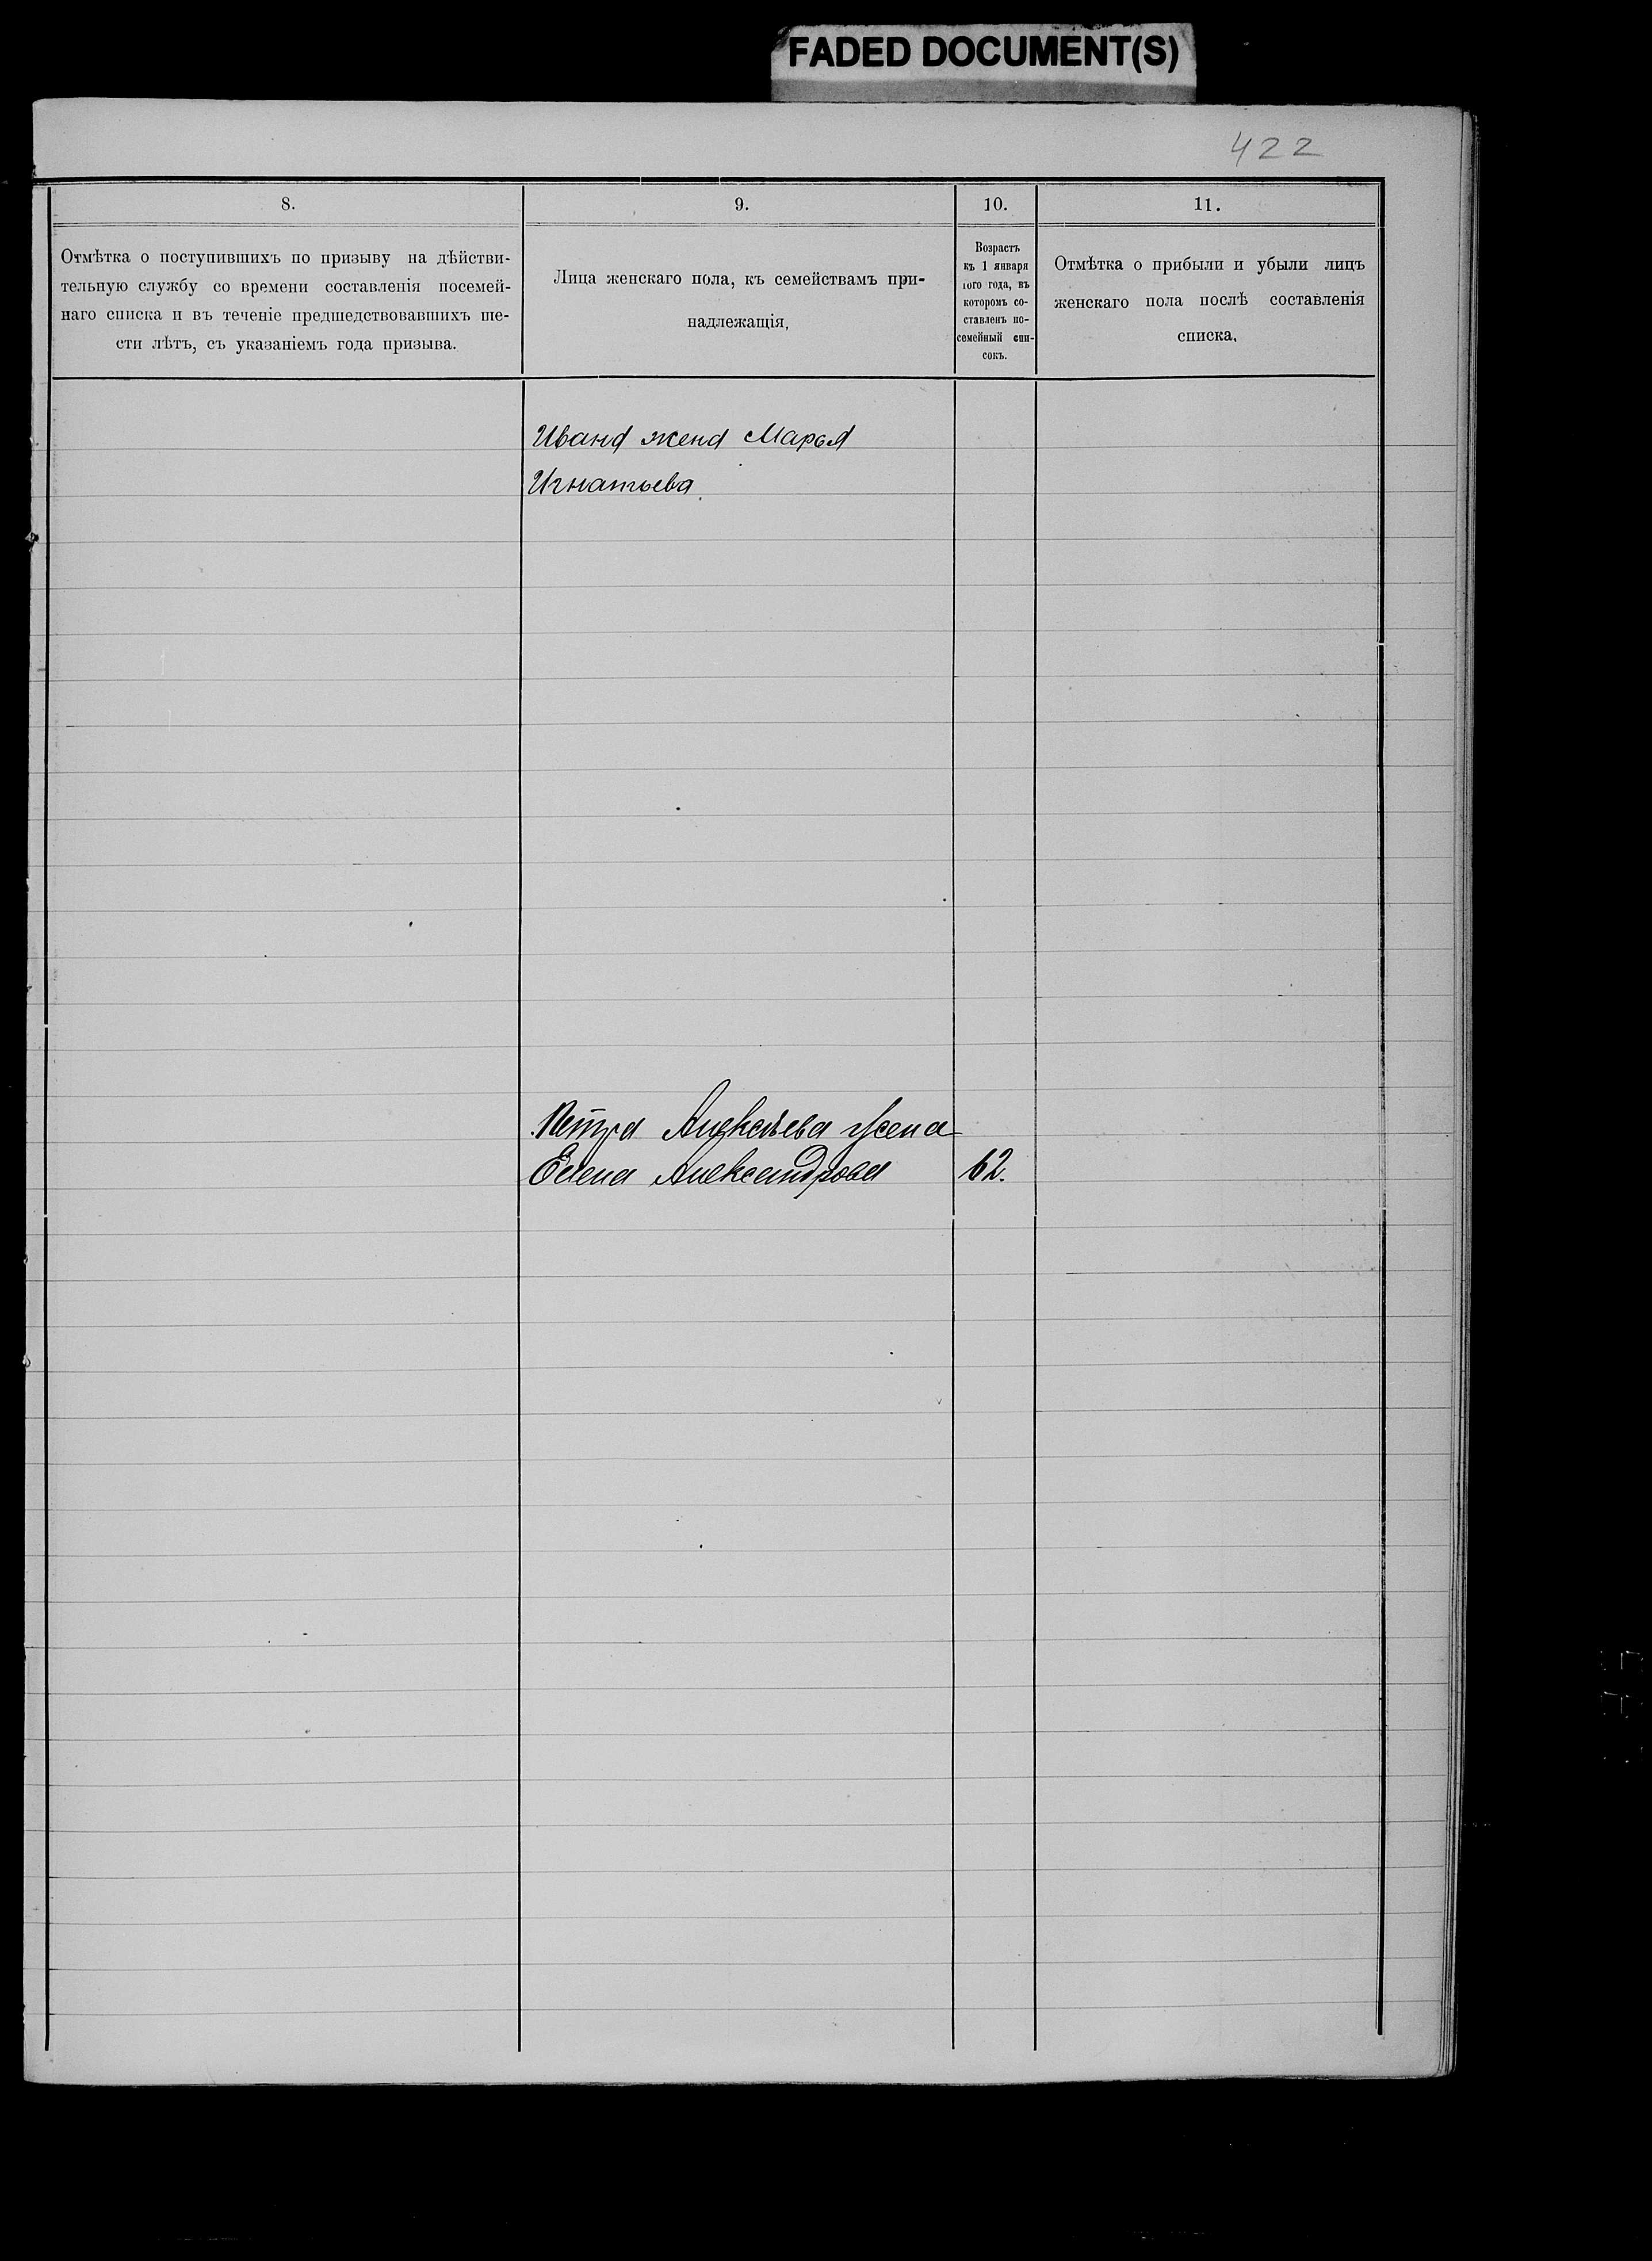 FADED DOCUMENT(S)
422
8.
9.
10.
11.
Отмѣтка о поступившихъ по призыву на дѣйстви-
тельную службу со времени составленія посемей-
наго списка и въ теченіе предшедствовавшихъ ше-
сти лѣтъ, съ указаніемъ года призыва.
Лица женскаго пола, къ семействамъ при-
надлежащія,
Возрастъ
къ 1 января
того года, въ
которомъ со-
ставленъ по-
семейный спи-
сокъ.
Отмѣтка о прибыли и убыли лицъ
женскаго пола послѣ составленія
списка,
Ивана жена Марья
Игнатьева
Петра Алексѣева жена
Елена Александрова 62.